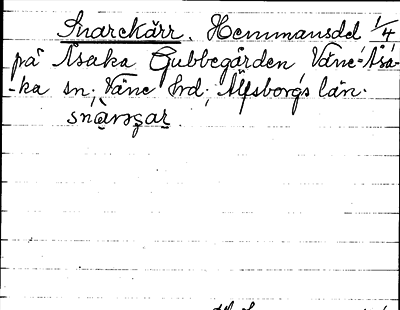 Snarekärr. Hemmansdel 1/4
på Åsaka Gubbegården Väne-Åsa-
-ka sn; Väne hrd; Älfsborgs län.